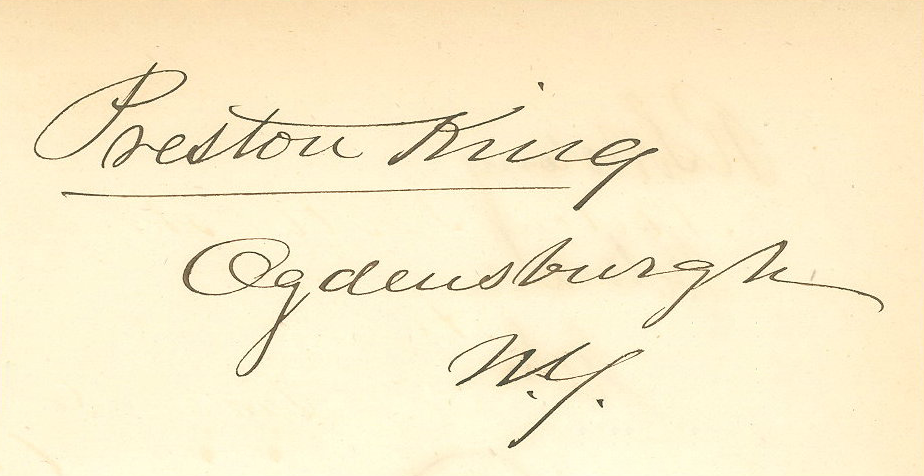 Preston King
Ogdensburgh
N.Y.